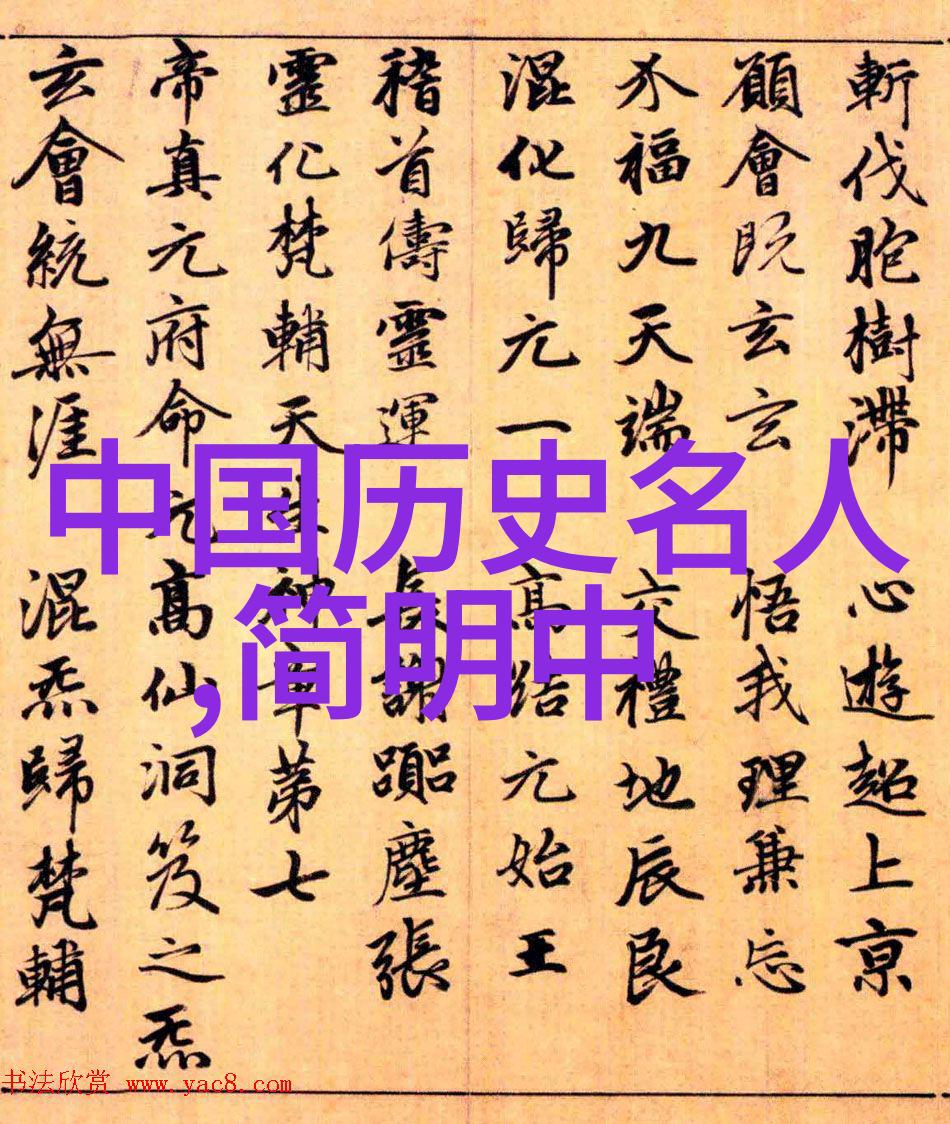 中国历史名人
,简明中
斬伐胞樹滞 心遊超上京
願會既玄玄 悟我理兼忘
介福九天端 交禮地辰良
混化歸元一 高結元始王
稽首儔靈運 長謝躡塵張
靈化梵輔天生神章第七
帝真元府命元高仙洞笈之炁
玄會統無涯 混炁歸梵輔
书法欣赏 www.yac8.com